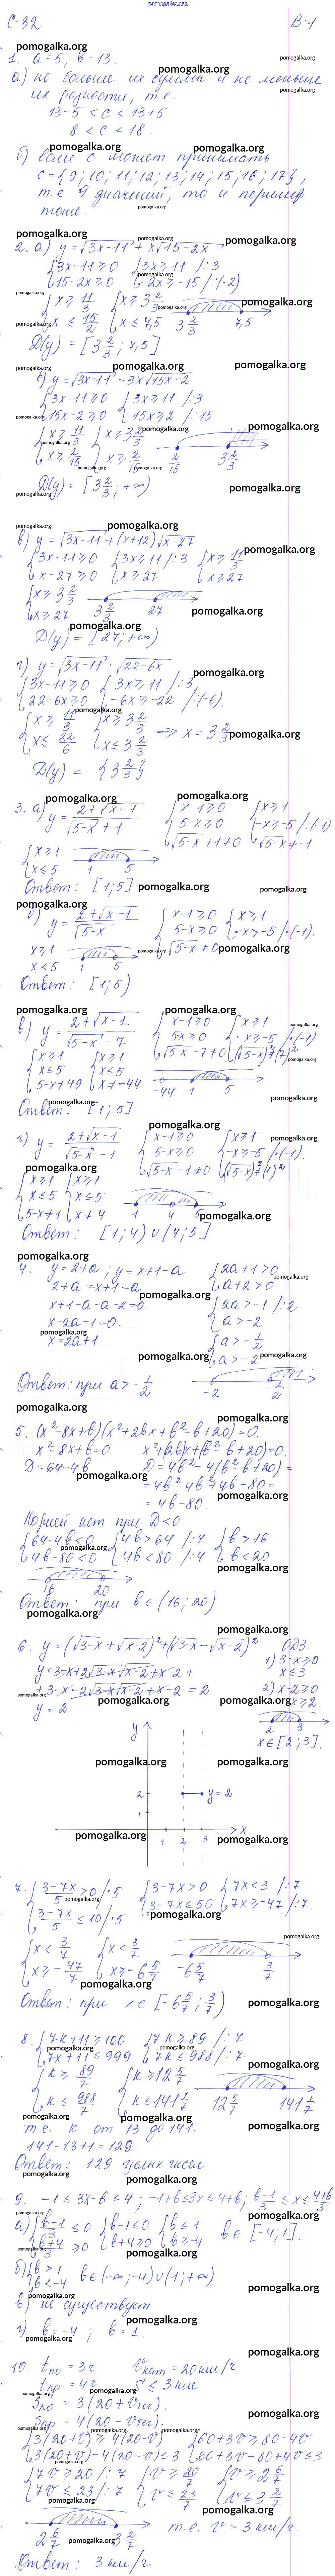 pomogalka.org
С-32 В-1
1. a=5, b=13.
а) не больше их суммы и не меньше
их разности, т.е.
13-5 < c < 13+5
8 < c < 18.
б) если c может принимать
c = {9; 10; 11; 12; 13; 14; 15; 16; 17},
т.е 9 значений, то и периметр
тоже.
2. а) y = √3x-11 + x√15-2x
{3x-11≥0 {3x≥11 /:3
{15-2x≥0 {-2x≥-15 /:(-2)
{x≥ 11/3 {x≥3 2/3
{x≤ 15/2 {x≤7,5 3 2/3 7,5
D(y) = [3 2/3; 7,5]
б) y = √3x-11 - 3x√15x-2
{3x-11≥0 {3x≥11 /:3
{15x-2≥0 {15x≥2 /:15
{x≥ 11/3 {x≥3 2/3
{x≥ 2/15 {x≥ 2/15 2/15 3 2/3
D(y) = [3 2/3; +∞)
в) y = √3x-11 + (x+12)√x-27
{3x-11≥0 {3x≥11 /:3 {x≥ 11/3
{x-27≥0 {x≥27 {x≥27
{x≥3 2/3
{x≥27 3 2/3 27
D(y) = [27; +∞)
г) y = √3x-11 · √22-6x
{3x-11≥0 {3x≥11 /:3
{22-6x≥0 {-6x≥-22 /:(-6)
{x≥ 11/3 {x≥3 2/3
{x≤ 22/6 {x≤3 2/3 => x = 3 2/3
D(y) = {3 2/3}
3. а) y = 2+√x-1 / √5-x + 1 {x-1≥0 {x≥1
{5-x≥0 {-x≥-5 /·(-1)
{√5-x +1≠0 {√5-x ≠-1
{x≥1
{x≤5 1 5
Ответ: [1; 5]
б) y = 2+√x-1 / √5-x {x-1≥0 {x≥1
{5-x≥0 {-x>-5 /·(-1).
{√5-x ≠0
x≥1
x<5 1 5
Ответ: [1; 5)
в) y = 2+√x-1 / √5-x - 7 {x-1≥0 {x≥1
{5x≥0 {-x≥-5 /·(-1)
{√5-x -7≠0 {(√5-x)²≠(7)²
{x≥1 {x≥1
{x≤5 {x≤5
{5-x≠49 {x≠-44 -44 1 5
Ответ: [1; 5]
г) y = 2+√x-1 / √5-x - 1 {x-1≥0 {x≥1
{5-x≥0 {-x≥-5 /·(-1).
{√5-x -1≠0 {(√5-x)²≠(1)²
{x≥1 {x≥1
{x≤5 {x≤5
{5-x≠1 {x≠4 1 4 5
Ответ: [1; 4) ∪ (4; 5]
4. y=2+a; y=x+1-a {2a+1>0
2+a = x+1-a {a+2>0
x+1-a-a-2=0. {2a>-1 /:2
x-2a-1=0. {a>-2
x=2a+1 {a>- 1/2
{a>-2
Ответ: при a>- 1/2 -2 - 1/2
5. (x²-8x+b)(x²+2bx+b²-b+20)=0.
x²-8x+b=0 x²+(2b)x+(b²-b+20)=0.
D=64-4b D=4b²-4(b²-b+20)=
=4b²-4b²+4b-80=
=4b-80.
Корней нет при D<0
{64-4b<0 {4b>64 /:4 {b>16
{4b-80<0 {4b<80 /:4 {b<20
16 20
Ответ: при b∈(16; 20)
6. y=(√3-x+√x-2)²+(√3-x-√x-2)² ОДЗ.
y=3-x+2√3-x√x-2+x-2+ 1) 3-x≥0
+3-x-2√3-x√x-2+x-2 = 2 x≤3
y=2 2) x-2≥0
x≥2.
2 3
x∈[2; 3].
y
2 y=2
1
1 2 3 x
7. {3-7x/5 >0 /·5 {3-7x>0 {7x<3 /:7
{3-7x/5 ≤10 /·5 {3-7x≤50 {7x≥-47 /:7
{x< 3/7 {x< 3/7
{x≥- 47/7 {x≥-6 5/7 -6 5/7 3/7
Ответ: при x∈[-6 5/7; 3/7)
8. {7k+11≥100 {7k≥89 /:7
{7k+11≤999 {7k≤988 /:7
{k≥ 89/7 {k≥12 5/7
{k≤ 988/7 {k≤141 1/7 12 5/7 141 1/7
т.е. k от 13 до 141.
141-13+1=129.
Ответ: 129 целых чисел
9. -1≤3x-b≤4; -1+b≤3x≤4+b; b-1/3 ≤x≤ 4+b/3
а) {b-1/3 ≤0 {b-1≤0 {b≤1
{b+4/3 ≥0 {b+4≥0 {b≥-4 b∈[-4; 1].
б) {b>1
{b<-4 b∈(-∞; -4)∪(1; +∞)
в) не существует
г) b=-4; b=1.
10. tпо=3ч Vкат=20км/ч
tпр=4ч S≤3км
Sпо=3(20+Vтеч).
Sпр=4(20-Vтеч).
{3(20+v)≥4(20-v) {60+3v≥80-4v
{3(20+v)-4(20-v)≤3 {60+3v-80+4v≤3
{7v≥20 /:7 {v≥ 20/7 {v≥2 6/7
{7v≤23 /:7 {v≤ 23/7 {v≤3 2/7
2 6/7 3 2/7 т.е. v=3км/ч.
Ответ: 3 км/ч